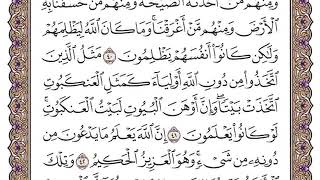 وَمِنْهُم مَّنْ أَخَذَتْهُ الصَّيْحَةُ وَمِنْهُم مَّنْ خَسَفْنَا بِهِ
الْأَرْضَ وَمِنْهُم مَّنْ أَغْرَقْنَا وَمَا كَانَ اللَّهُ لِيَظْلِمَهُمْ
وَلَٰكِن كَانُوا أَنفُسَهُمْ يَظْلِمُونَ ٤٠ مَثَلُ الَّذِينَ
اتَّخَذُوا مِن دُونِ اللَّهِ أَوْلِيَاءَ كَمَثَلِ الْعَنكَبُوتِ
اتَّخَذَتْ بَيْتًا وَإِنَّ أَوْهَنَ الْبُيُوتِ لَبَيْتُ الْعَنكَبُوتِ
لَوْ كَانُوا يَعْلَمُونَ ٤١ إِنَّ اللَّهَ يَعْلَمُ مَا يَدْعُونَ مِن
دُونِهِ مِن شَيْءٍ وَهُوَ الْعَزِيزُ الْحَكِيمُ ٤٢ وَتِلْكَ